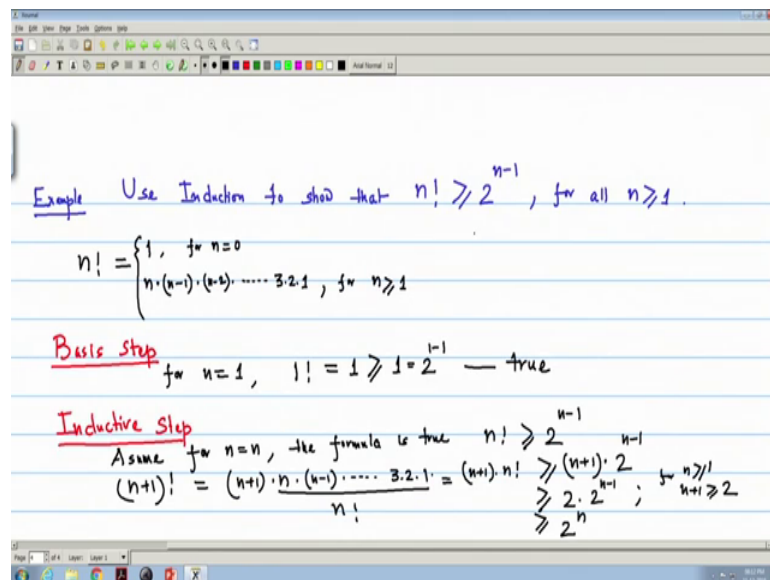 Journal
File Edit View Page Tools Options Help
Arial Normal 12
Example Use Induction to show that n! ≥ 2^{n-1}, for all n ≥ 1.
n! = { 1, for n=0
n·(n-1)·(n-2)· ····· 3·2·1, for n ≥ 1
Basis Step
for n=1, 1! = 1 ≥ 1 = 2^{1-1} — true
Inductive Step
Asume for n=n, the formula is true n! ≥ 2^{n-1}
(n+1)! = (n+1)·n·(n-1)· ····· 3·2·1· = (n+1)·n! ≥ (n+1)·2^{n-1}
n! ≥ 2·2^{n-1} ; for n ≥ 1
n+1 ≥ 2
≥ 2^n
Page 4 of 4 Layer: Layer 1